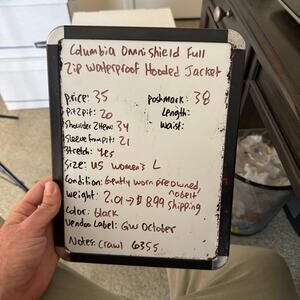 Columbia Omnishield Full
Zip Waterproof Hooded Jacket
price: 35
Poshmark: 38
pit2pit: 20
Length:
Shoulder2Hem: 34
Waist:
Sleeve from pit: 21
Stretch: Yes
Size: US women's L
Condition: Gently worn preowned,
no belt
Weight: 2.01 → $8.99 Shipping
Color: Black
Vendoo Label: GW October
Notes: Crawl 6355